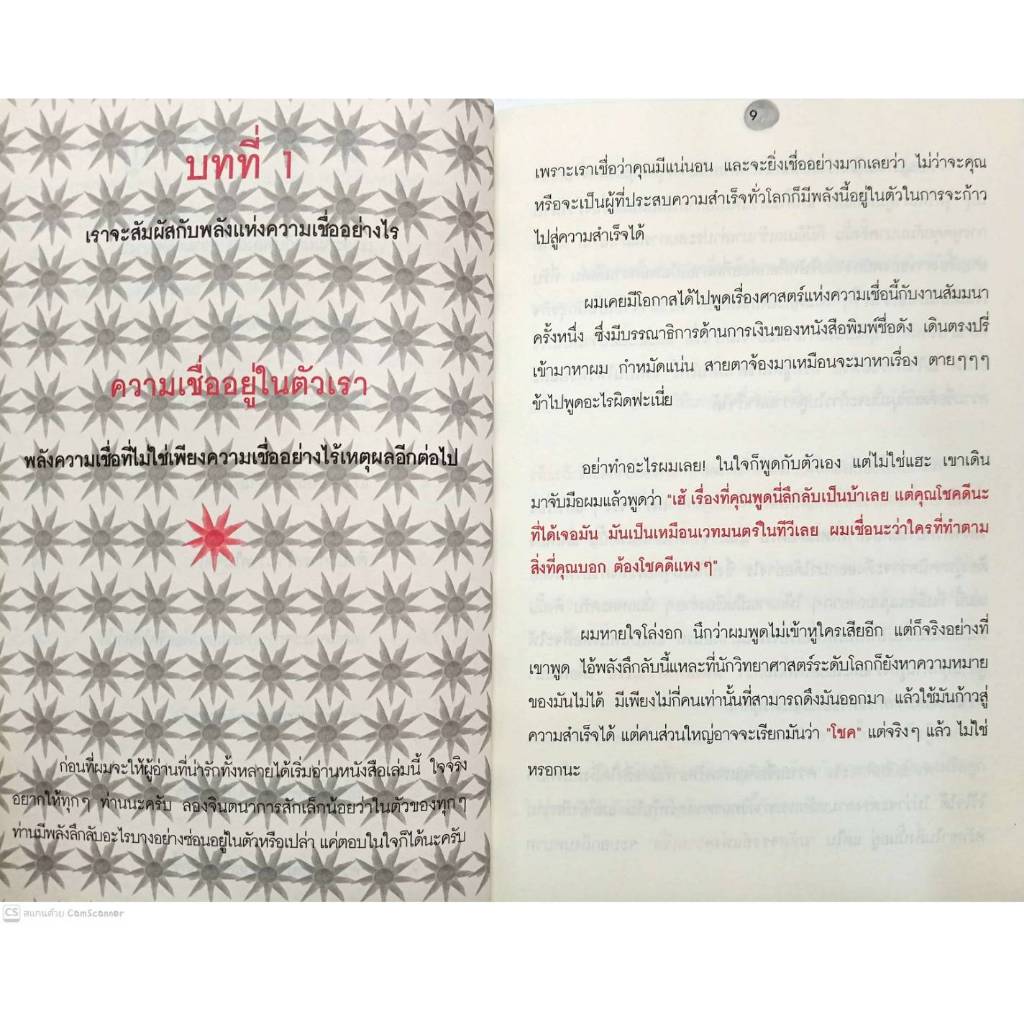 บทที่ 1
เราจะสัมผัสกับพลังแห่งความเชื่ออย่างไร
ความเชื่ออยู่ในตัวเรา
พลังความเชื่อที่ไม่ใช่เพียงความเชื่ออย่างไร้เหตุผลอีกต่อไป
ก่อนที่ผมจะให้ผู้อ่านที่น่ารักทั้งหลายได้เริ่มอ่านหนังสือเล่มนี้ ใจจริง
อยากให้ทุกๆ ท่านนะครับ ลองจินตนาการสักเล็กน้อยว่าในตัวของทุกๆ
ท่านมีพลังลึกลับอะไรบางอย่างซ่อนอยู่ในตัวหรือเปล่า แค่ตอบในใจก็ได้นะครับ
CS สแกนด้วย CamScanner
9
เพราะเราเชื่อว่าคุณมีแน่นอน และจะยิ่งเชื่ออย่างมากเลยว่า ไม่ว่าจะคุณ
หรือจะเป็นผู้ที่ประสบความสำเร็จทั่วโลกก็มีพลังนี้อยู่ในตัวในการจะก้าว
ไปสู่ความสำเร็จได้
ผมเคยมีโอกาสได้ไปพูดเรื่องศาสตร์แห่งความเชื่อนี้กับงานสัมมนา
ครั้งหนึ่ง ซึ่งมีบรรณาธิการด้านการเงินของหนังสือพิมพ์ชื่อดัง เดินตรงปรี่
เข้ามาหาผม กำหมัดแน่น สายตาจ้องมาเหมือนจะมาหาเรื่อง ตายๆๆๆ
ข้าไปพูดอะไรผิดฟะเนี่ย
อย่าทำอะไรผมเลย! ในใจก็พูดกับตัวเอง แต่ไม่ใช่แฮะ เขาเดิน
มาจับมือผมแล้วพูดว่า "เฮ้ เรื่องที่คุณพูดนี่ลึกลับเป็นบ้าเลย แต่คุณโชคดีนะ
ที่ได้เจอมัน มันเป็นเหมือนเวทมนตร์ในทีวีเลย ผมเชื่อนะว่าใครที่ทำตาม
สิ่งที่คุณบอก ต้องโชคดีแหงๆ"
ผมหายใจโล่งอก นึกว่าผมพูดไม่เข้าหูใครเสียอีก แต่ก็จริงอย่างที่
เขาพูด ไอ้พลังลึกลับนี้แหละที่นักวิทยาศาสตร์ระดับโลกก็ยังหาความหมาย
ของมันไม่ได้ มีเพียงไม่กี่คนเท่านั้นที่สามารถดึงมันออกมา แล้วใช้มันก้าวสู่
ความสำเร็จได้ แต่คนส่วนใหญ่อาจจะเรียกมันว่า "โชค" แต่จริงๆ แล้ว ไม่ใช่
หรอกนะ